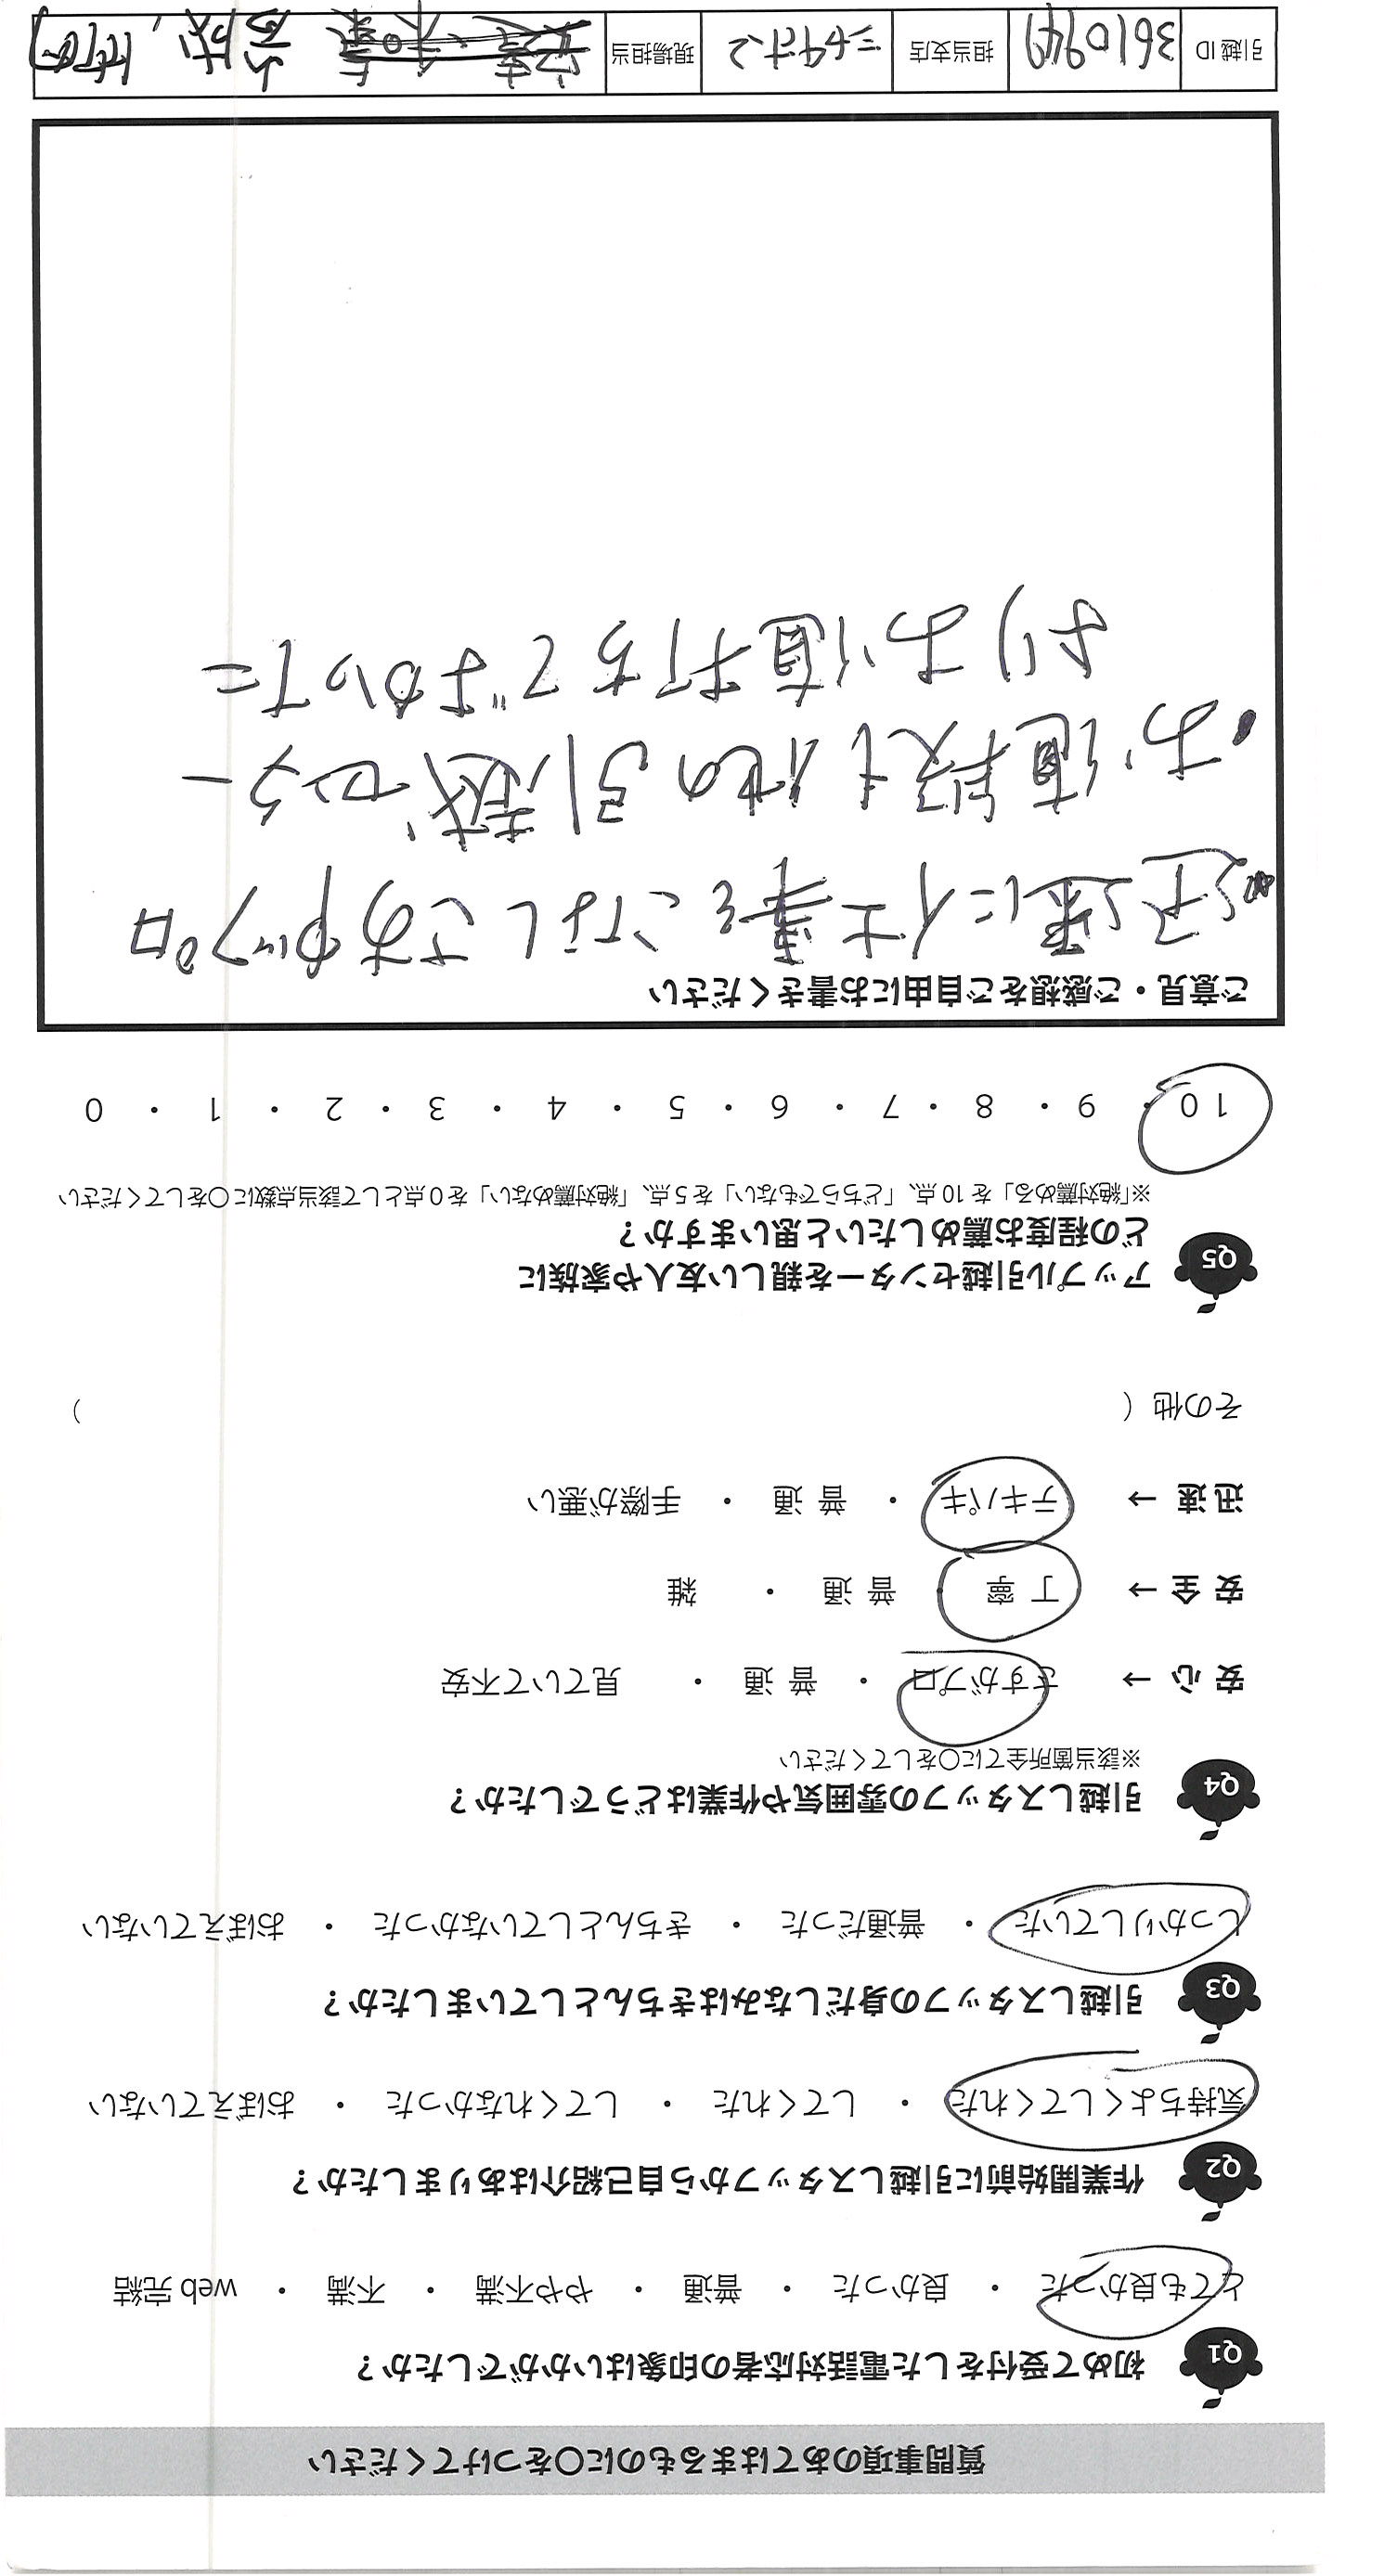 質問事項のあてはまるものに〇をつけてください
Q1 初めて受付をした電話対応者の印象はいかがでしたか？
とても良かった ・ 良かった ・ 普通 ・ やや不満 ・ 不満 ・ web 完結
Q2 作業開始前に引越しスタッフから自己紹介はありましたか？
気持ちよくしてくれた ・ してくれた ・ してくれなかった ・ おぼえていない
Q3 引越しスタッフの身だしなみはきちんとしていましたか？
しっかりしていた ・ 普通だった ・ きちんとしていなかった ・ おぼえていない
Q4 引越しスタッフの雰囲気や作業はどうでしたか？
※該当箇所全てに〇をしてください
安 心 → さすがプロ ・ 普 通 ・ 見ていて不安
安 全 → 丁 寧 ・ 普 通 ・ 雑
迅 速 → テキパキ ・ 普 通 ・ 手際が悪い
その他（ ）
Q5 アップル引越センターを親しい友人や家族に
どの程度お薦めしたいと思いますか？
※「絶対薦める」を 10 点、「どちらでもない」を 5 点、「絶対薦めない」を 0 点として該当点数に〇をしてください
10 ・ 9 ・ 8 ・ 7 ・ 6 ・ 5 ・ 4 ・ 3 ・ 2 ・ 1 ・ 0
ご意見・ご感想をご自由にお書きください
・迅速に仕事をこなしさすがプロ
・お値段も他の引越センター
よりお値打ちでよかった
引越 ID 担当支店 現場担当